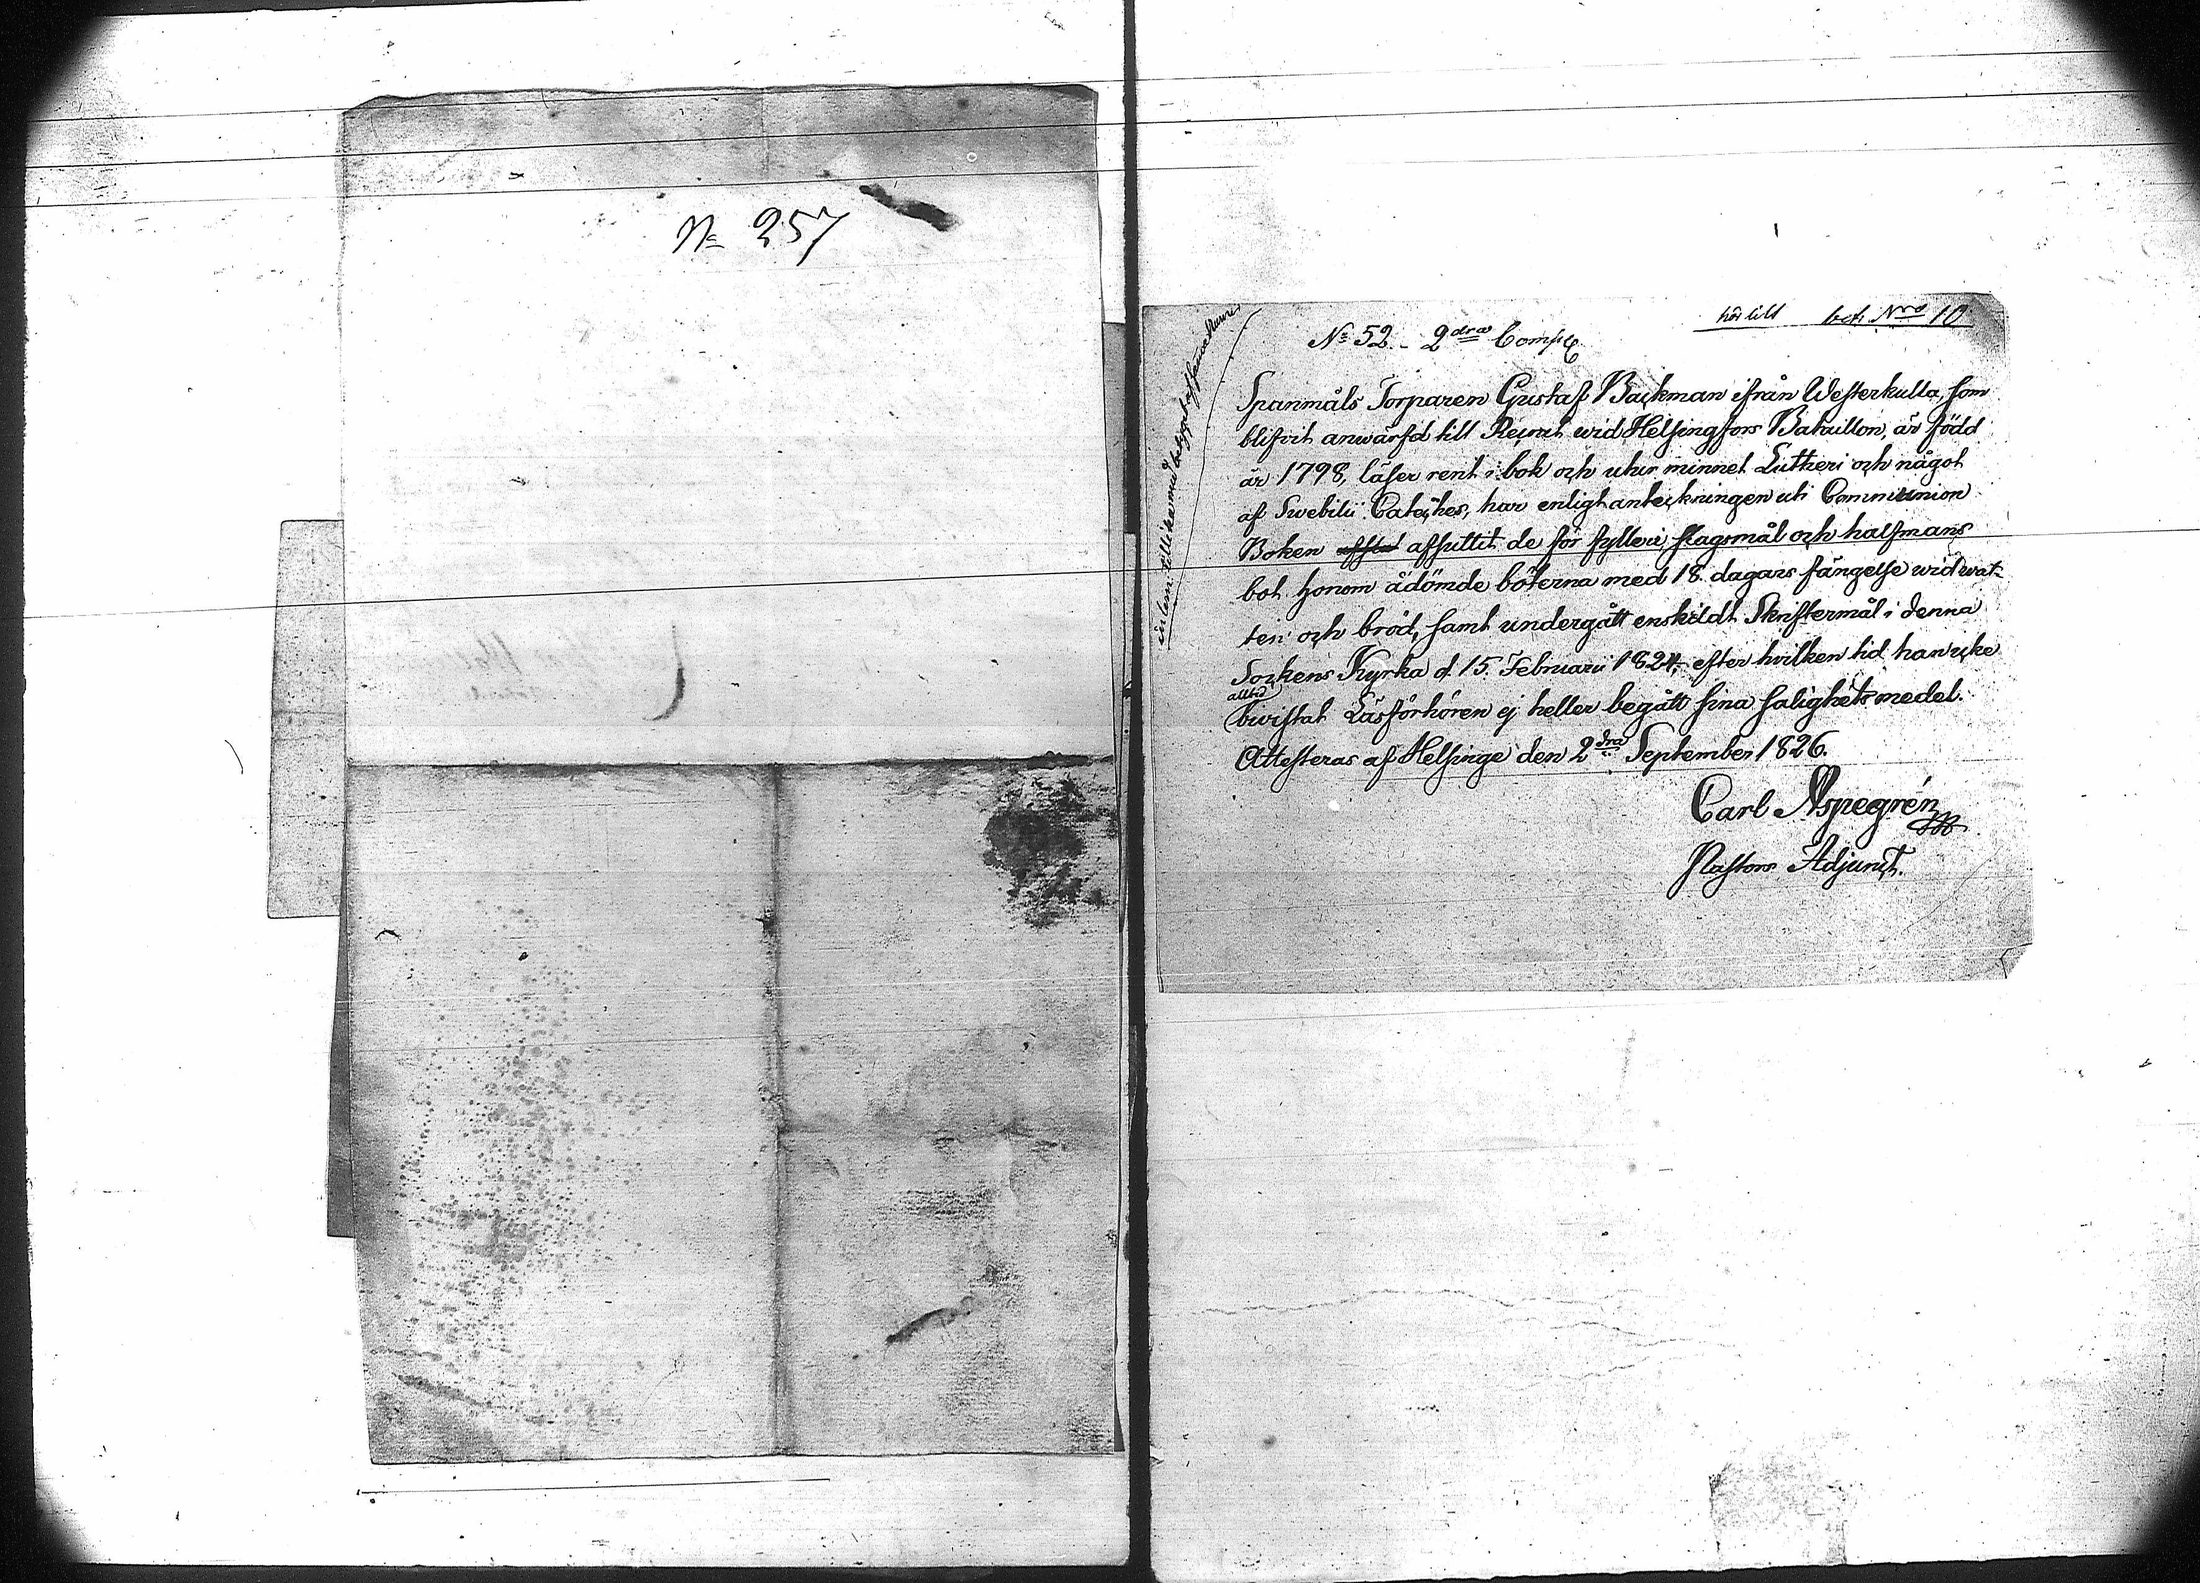 N= 257
hör till bet. Nro 10
N= 52. 2dra Comp
Spanmåls Torparen Gustaf Backman ifrån Westerkulla, som
blifvit anwärfd till Recrut wid Helsingfors Bataillon, är född
år 1798, läser rent i bok och utur minnet Lutheri och något
af Swebilii Cateches, har enligt anteckningen uti Communion
Boken afsuttit de för fylleri, slagsmål och halfmans
bot honom ådömde böterna med 18 dagars fängelse wid wat-
ten och bröd, samt undergått enskildt Skriftermål i denna
Sockens Kyrka d. 15. Februarii 1824, efter hvilken tid han icke
alltid
bivistat Läsförhören ej heller begått sina salighets medel.
Attesteras af Helsinge den 2dra September 1826.
Carl Aspegrén
Pastors Adjunct.